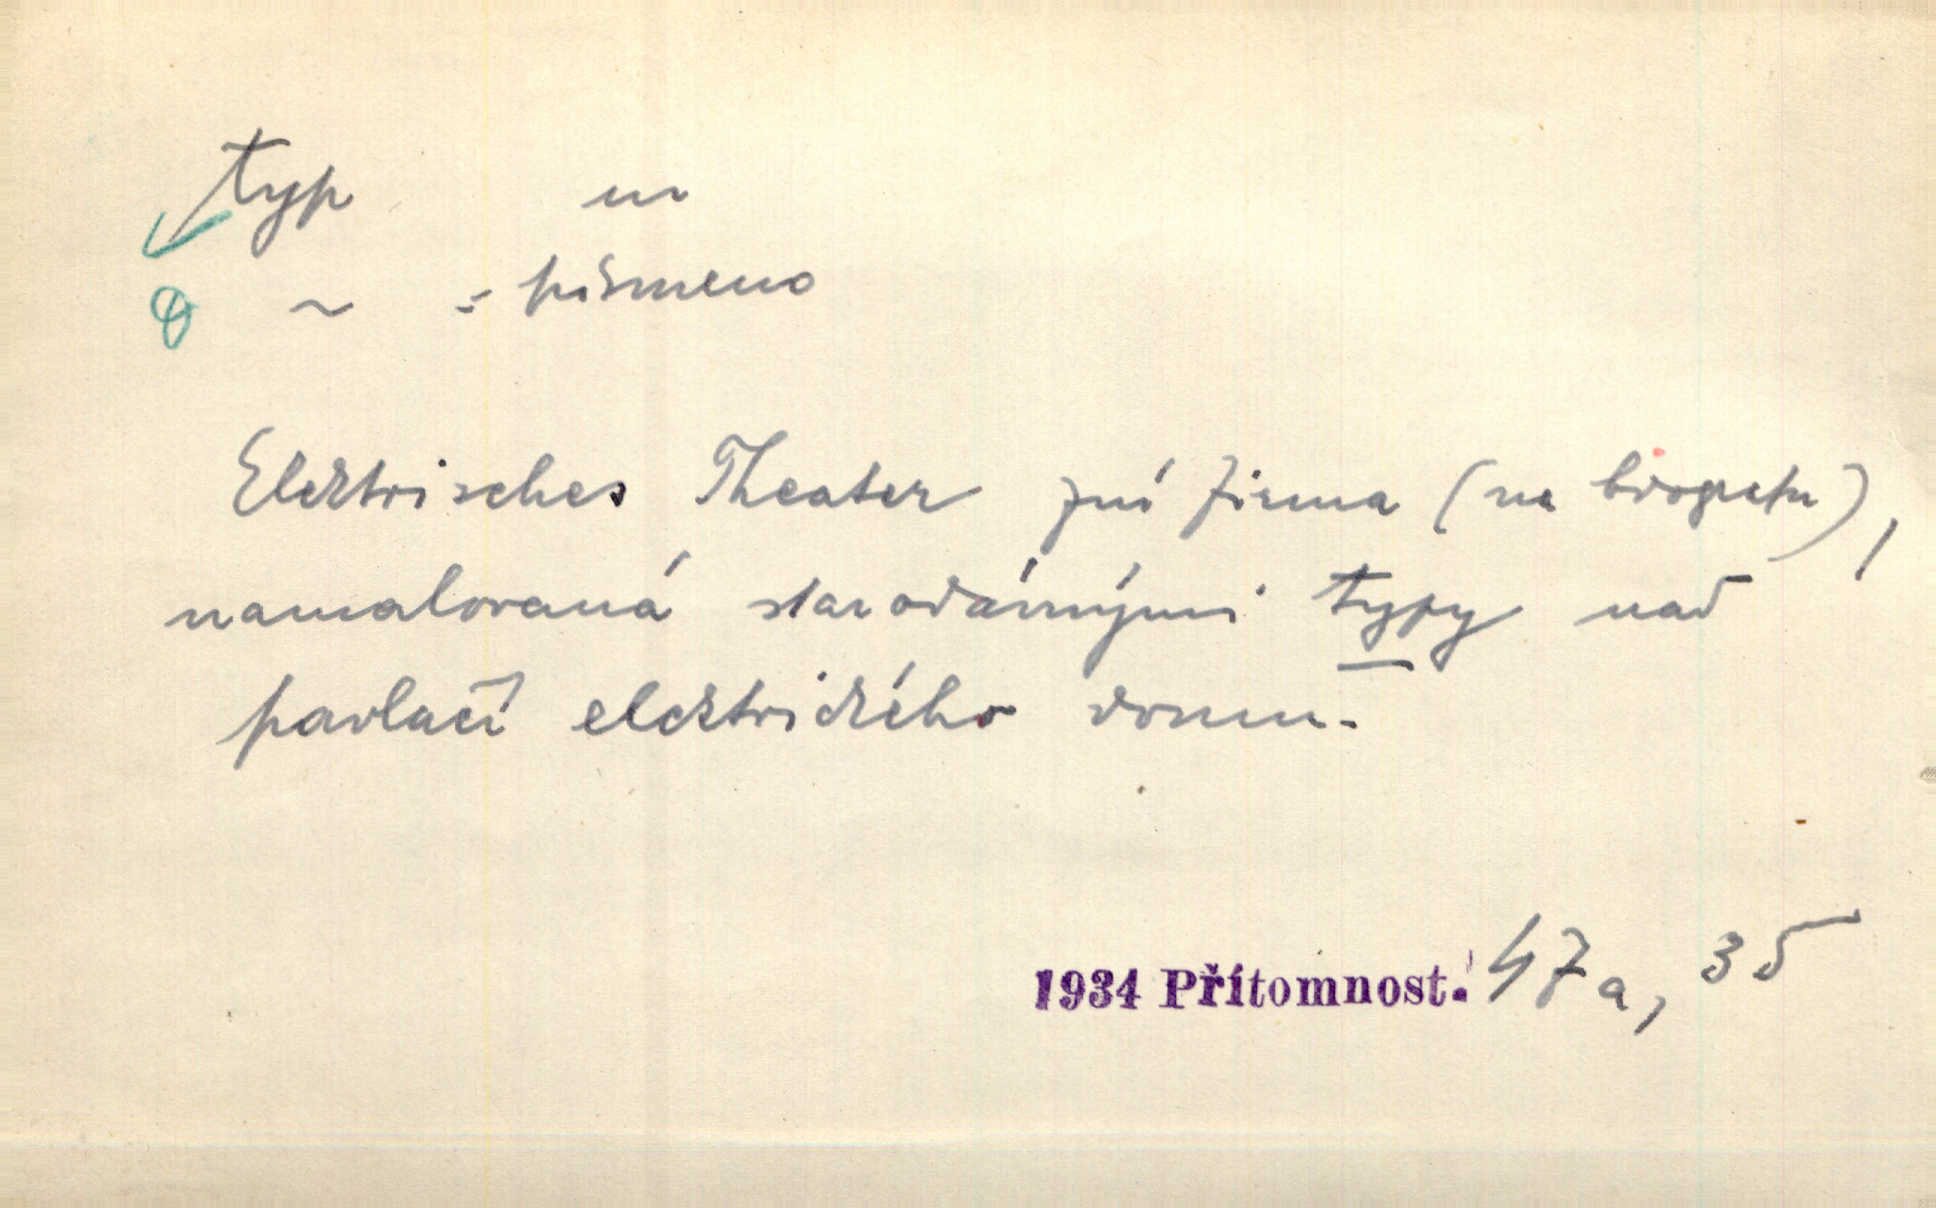 typ m
~ = písmeno
Elektrisches Theater zní firma (na biografu),
namalovaná starodávnými typy nad
pavlačí elektrického domu.
1934 Přítomnost. 47a, 35